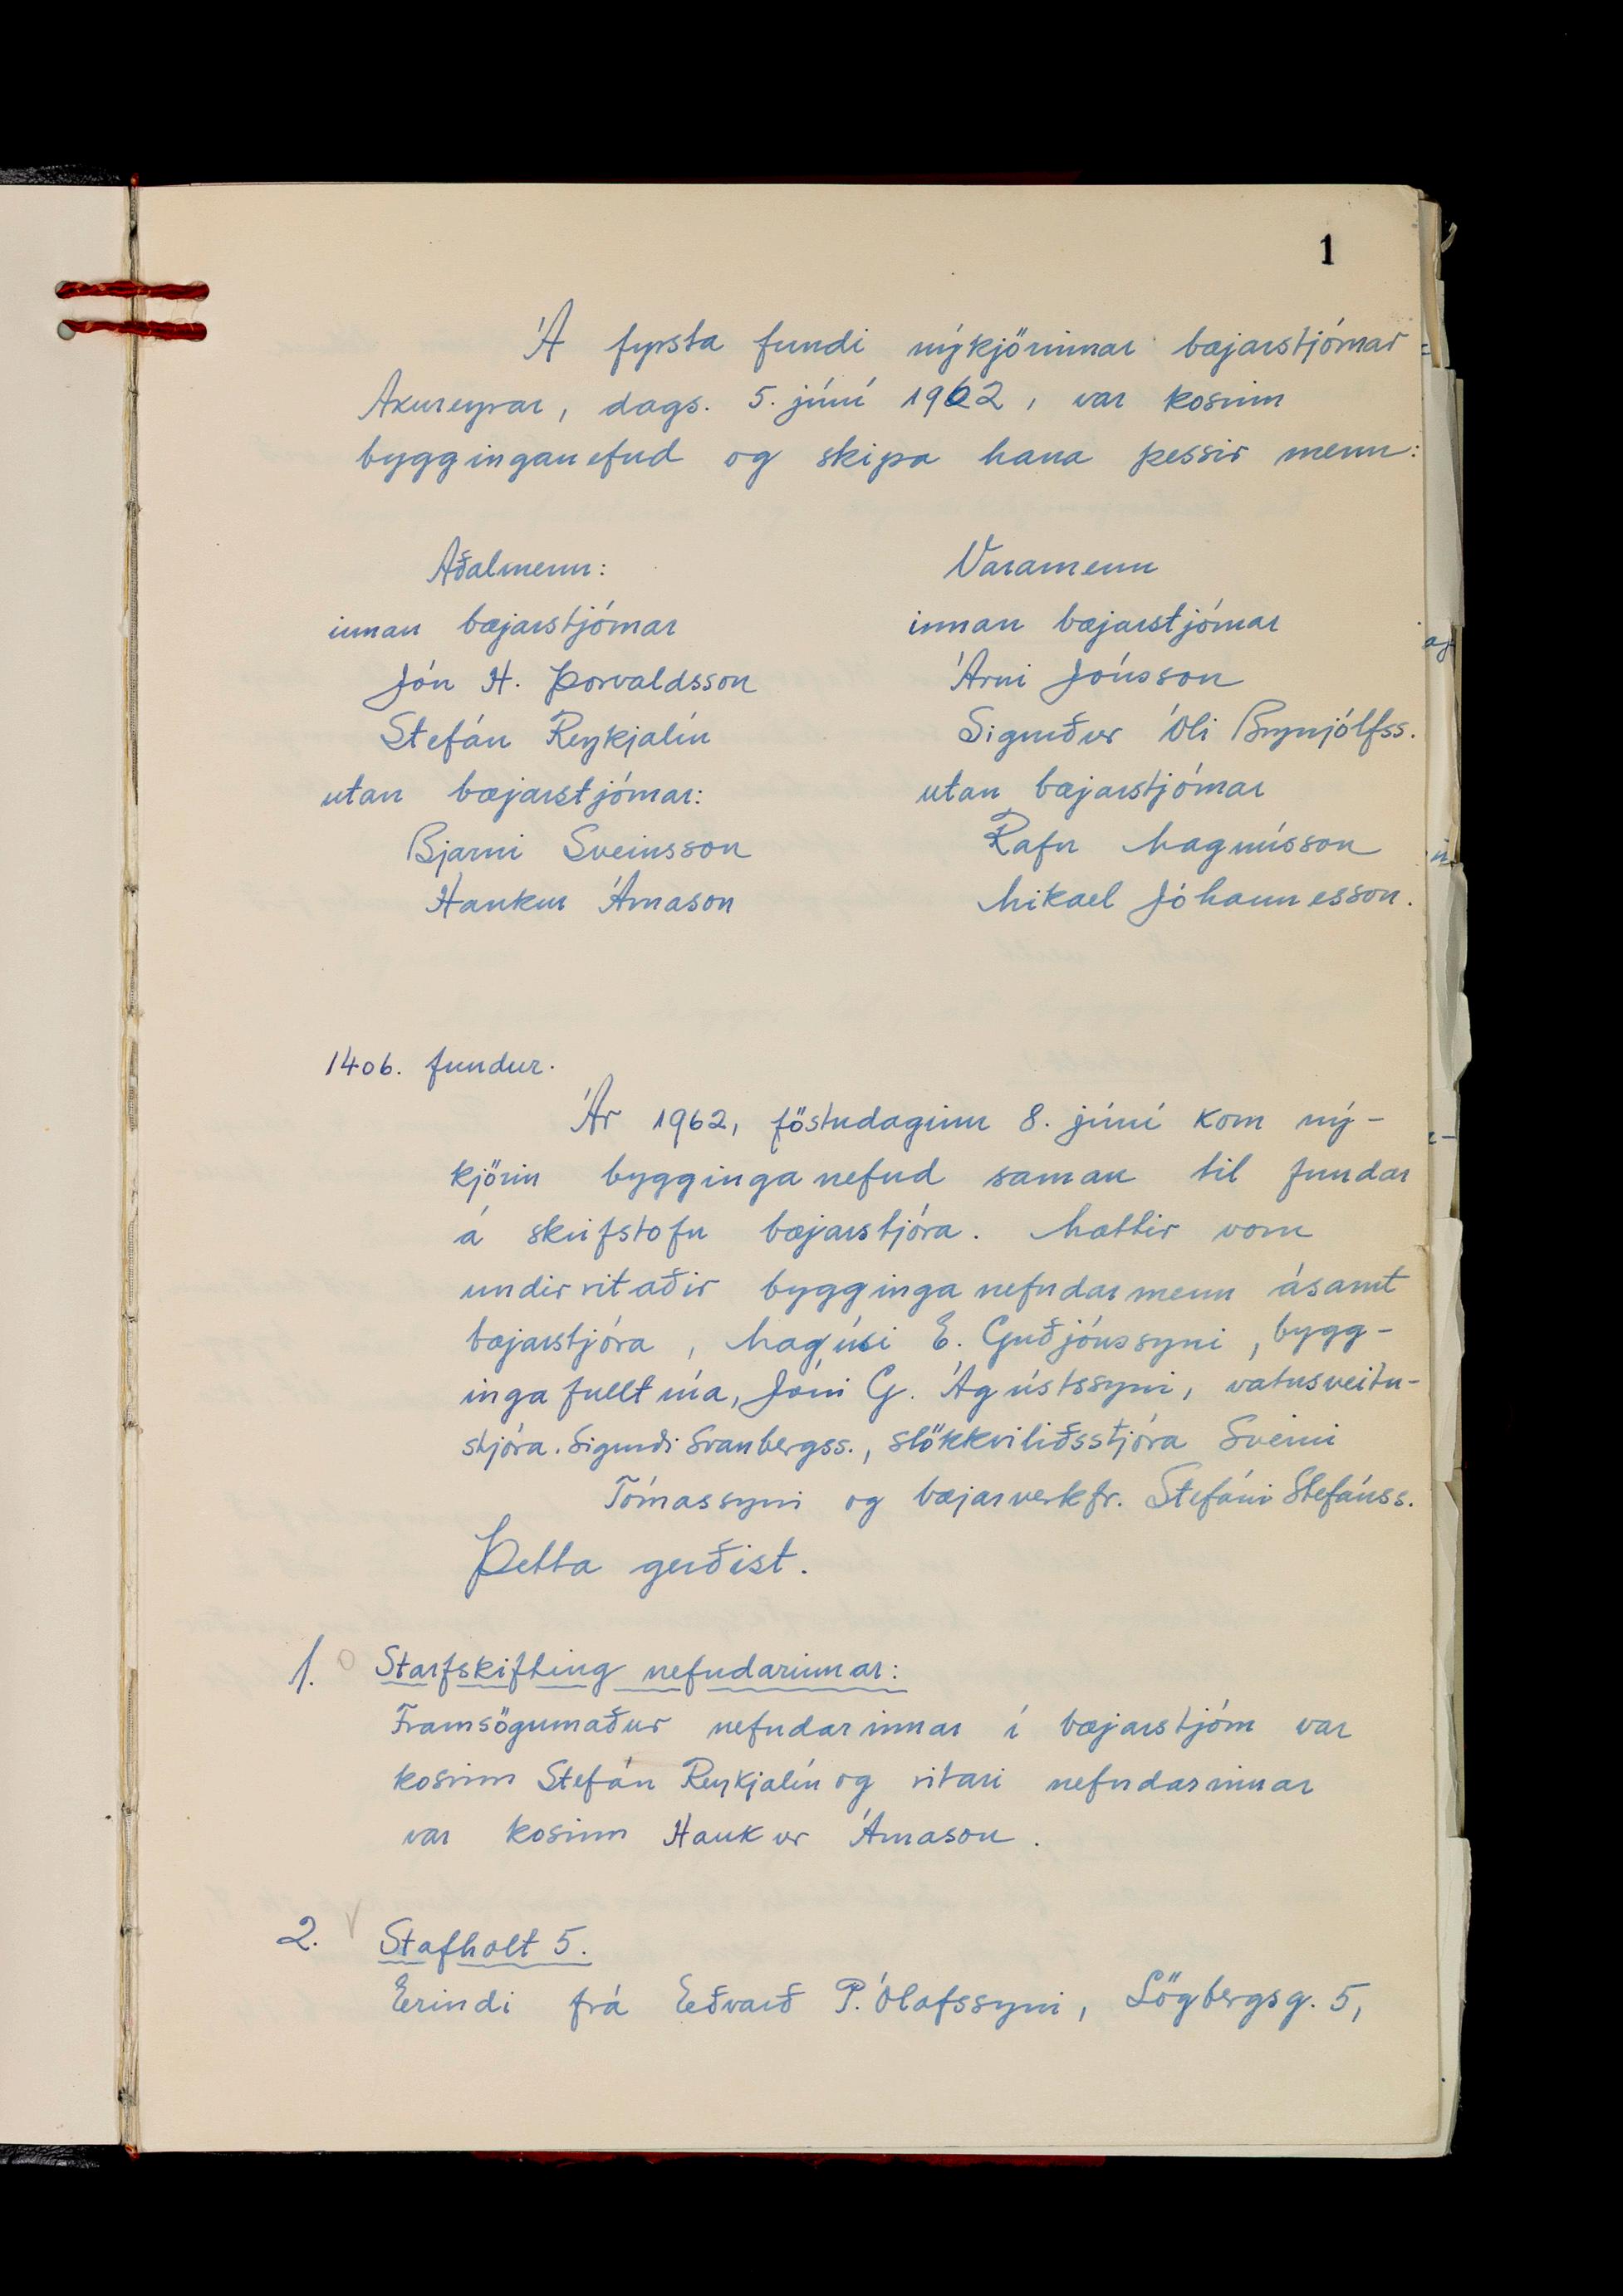 1
Á fyrsta fundi nýkjörinnar bæjarstjórnar
Akureyrar, dags. 5. júní 1962, var kosinn
bygginganefnd og skipa hana þessir menn:
Aðalmenn:
innan bæjarstjórnar
Jón H. Þorvaldsson
Stefán Reykjalín
utan bæjarstjórnar:
Bjarni Sveinsson
Haukur Árnason
Varamenn
innan bæjarstjórnar
Árni Jónsson
Sigurður Óli Brynjólfss.
utan bæjarstjórnar
Rafn Magnússon
Mikael Jóhannesson.
1406. fundur.
Ár 1962, föstudaginn 8. júní kom ný-
kjörin bygginganefnd saman til fundar
á skrifstofu bæjarstjóra. Mættir voru
undirritaðir bygginganefndarmenn ásamt
bæjarstjóra, Magúsi E. Guðjónssyni, bygg-
ingafulltrúa, Jóni G. Ágústssyni, vatnsveitu-
stjóra. Sigurði Svanbergss., slökkviliðsstjóra Sveini
Tómassyni og bæjarverkfr. Stefáni Stefánss.
Þetta gerðist.
1. Starfskifting nefndarinnar:
Framsögumaður nefndarinnar í bæjarstjórn var
kosinn Stefán Reykjalín og ritari nefndarinnar
var kosinn Haukur Árnason.
2. Stafholt 5.
Erindi frá Eðvarð P. Ólafssyni, Lögbergsg. 5,